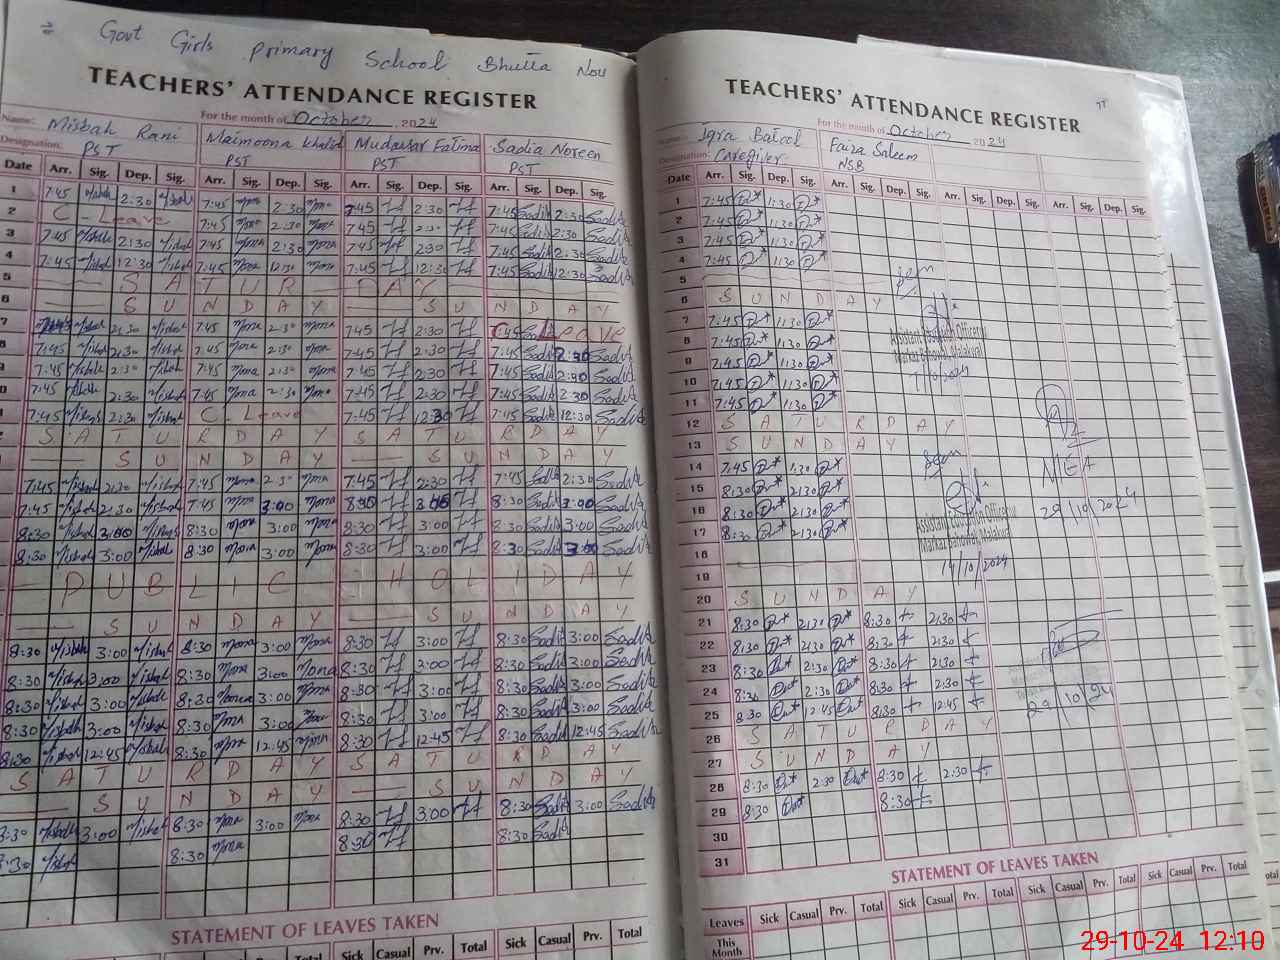 Govt Girls Primary School Bhutta Nou
TEACHERS' ATTENDANCE REGISTER
For the month of October, 2024
Name: Misbah Rani Maimoona Khalid Mudassar Fatima Sadia Noreen
Designation: PST PST PST PST
Date Arr. Sig. Dep. Sig. Arr. Sig. Dep. Sig. Arr. Sig. Dep. Sig. Arr. Sig. Dep. Sig.
1 7:45 Misbah 2:30 Misbah 7:45 Mona 2:30 Mona 7:45 2:30 7:45 Sadia 2:30 Sadia
2 C-Leave 7:45 Mona 2:30 Mona 7:45 2:30 7:45 Sadia 2:30 Sadia
3 7:45 Misbah 2:30 Misbah 7:45 Mona 2:30 Mona 7:45 2:30 7:45 Sadia 2:30 Sadia
4 7:45 Misbah 12:30 Misbah 7:45 Mona 12:30 Mona 7:45 12:30 7:45 Sadia 12:30 Sadia
5 SATURDAY
6 SUNDAY SUNDAY
7 Misbah 2:30 Misbah 7:45 Mona 2:30 Mona 7:45 2:30 Leave
8 7:45 Misbah 2:30 Misbah 7:45 Mona 2:30 Mona 7:45 2:30 7:45 Sadia 2:30 Sadia
9 7:45 Misbah 2:30 Misbah 7:45 Mona 2:30 Mona 7:45 2:30 7:45 Sadia 2:30 Sadia
0 7:45 Misbah 2:30 Misbah 7:45 Mona 2:30 Mona 7:45 2:30 7:45 Sadia 2:30 Sadia
1 7:45 Misbah 2:30 Misbah C-Leave 7:45 12:30 7:45 Sadia 12:30 Sadia
SATURDAY SATURDAY
SUNDAY SUNDAY
7:45 Misbah 2:30 Misbah 7:45 Mona 2:30 Mona 7:45 2:30 7:45 Sadia 2:30 Sadia
7:45 Misbah 2:30 Misbah 7:45 Mona 3:00 Mona 8:30 3:00 8:30 Sadia 3:00 Sadia
8:30 Misbah 3:00 Misbah 8:30 Mona 3:00 Mona 8:30 3:00 8:30 Sadia 3:00 Sadia
8:30 Misbah 3:00 Misbah 8:30 Mona 3:00 Mona 8:30 3:00 8:30 Sadia 3:00 Sadia
PUBLIC HOLIDAY
SUNDAY SUNDAY
8:30 Misbah 3:00 Misbah 8:30 Mona 3:00 Mona 8:30 3:00 8:30 Sadia 3:00 Sadia
8:30 Misbah 3:00 Misbah 8:30 Mona 3:00 Mona 8:30 3:00 8:30 Sadia 3:00 Sadia
8:30 Misbah 3:00 Misbah 8:30 Mona 3:00 Mona 8:30 3:00 8:30 Sadia 3:00 Sadia
8:30 Misbah 3:00 Misbah 8:30 Mona 3:00 Mona 8:30 3:00 8:30 Sadia 3:00 Sadia
8:30 Misbah 12:45 Misbah 8:30 Mona 12:45 Mona 8:30 12:45 8:30 Sadia 12:45 Sadia
SATURDAY SATURDAY
SUNDAY SUNDAY
8:30 Misbah 3:00 Misbah 8:30 Mona 3:00 Mona 8:30 3:00 8:30 Sadia 3:00 Sadia
8:30 Misbah 8:30 Mona 8:30 8:30 Sadia
STATEMENT OF LEAVES TAKEN
Sick Casual Prv. Total Sick Casual Prv. Total Sick Casual Prv. Total
TEACHERS' ATTENDANCE REGISTER
For the month of October 2024
Name: Iqra Batool Faiza Saleem
Designation: Caregiver NSB
Date Arr. Sig. Dep. Sig. Arr. Sig. Dep. Sig. Arr. Sig. Dep. Sig. Arr. Sig. Dep. Sig.
1 7:45 1:30
2 7:45 1:30
3 7:45 1:30
4 7:45 1:30
5
6 SUNDAY
7 7:45 1:30
8 7:45 1:30
9 7:45 1:30
10 7:45 1:30
11 7:45 1:30
12 SATURDAY
13 SUNDAY
14 7:45 1:30
15 8:30 2:30
16 8:30 2:30
17 8:30 2:30
18
19
20 SUNDAY
21 8:30 2:30 8:30 2:30
22 8:30 2:30 8:30 2:30
23 8:30 2:30 8:30 2:30
24 8:30 2:30 8:30 2:30
25 8:30 12:45 8:30 12:45
26 SATURDAY
27 SUNDAY
28 8:30 2:30 8:30 2:30
29 8:30 8:30
30
31
Assistant Education Officer
Markaz Bahowal, Malakwal
MEA
29/10/2024
Assistant Education Officer
Markaz Bahowal, Malakwal
14/10/2024
29/10/24
STATEMENT OF LEAVES TAKEN
Leaves Sick Casual Prv. Total Sick Casual Prv. Total Sick Casual Prv. Total Sick Casual Prv. Total
This Month
29-10-24 12:10